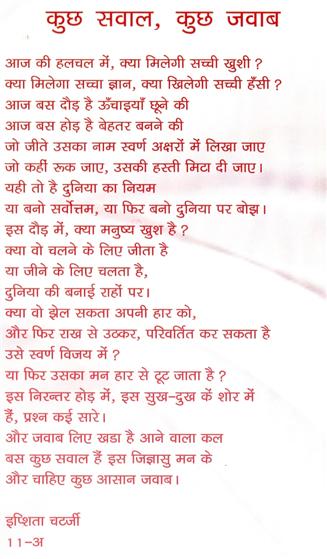 कुछ सवाल, कुछ जवाब
आज की हलचल में, क्या मिलेगी सच्ची खुशी ?
क्या मिलेगा सच्चा ज्ञान, क्या खिलेगी सच्ची हँसी ?
आज बस दौड़ है ऊँचाइयाँ छूने की
आज बस होड़ है बेहतर बनने की
जो जीते उसका नाम स्वर्ण अक्षरों में लिखा जाए
जो कहीं रूक जाए, उसकी हस्ती मिटा दी जाए।
यही तो है दुनिया का नियम
या बनो सर्वोत्तम, या फिर बनो दुनिया पर बोझ।
इस दौड़ में, क्या मनुष्य खुश है ?
क्या वो चलने के लिए जीता है
या जीने के लिए चलता है,
दुनिया की बनाई राहों पर।
क्या वो झेल सकता अपनी हार को,
और फिर राख से उठकर, परिवर्तित कर सकता है
उसे स्वर्ण विजय में ?
या फिर उसका मन हार से टूट जाता है ?
इस निरन्तर होड़ में, इस सुख-दुख के शोर में
हैं, प्रश्न कई सारे।
और जवाब लिए खडा है आने वाला कल
बस कुछ सवाल हैं इस जिज्ञासु मन के
और चाहिए कुछ आसान जवाब।
इप्शिता चटर्जी
11-अ